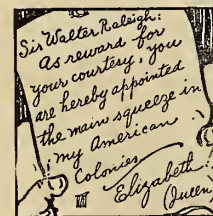 Sir Walter Raleigh:
As reward for
your courtesy, you
are hereby appointed
the main squeeze in
my American
Colonies
Elizabeth
Queen